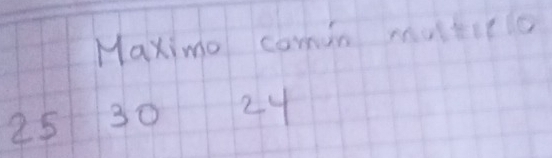 Maximo comun multiplo
25 30 24